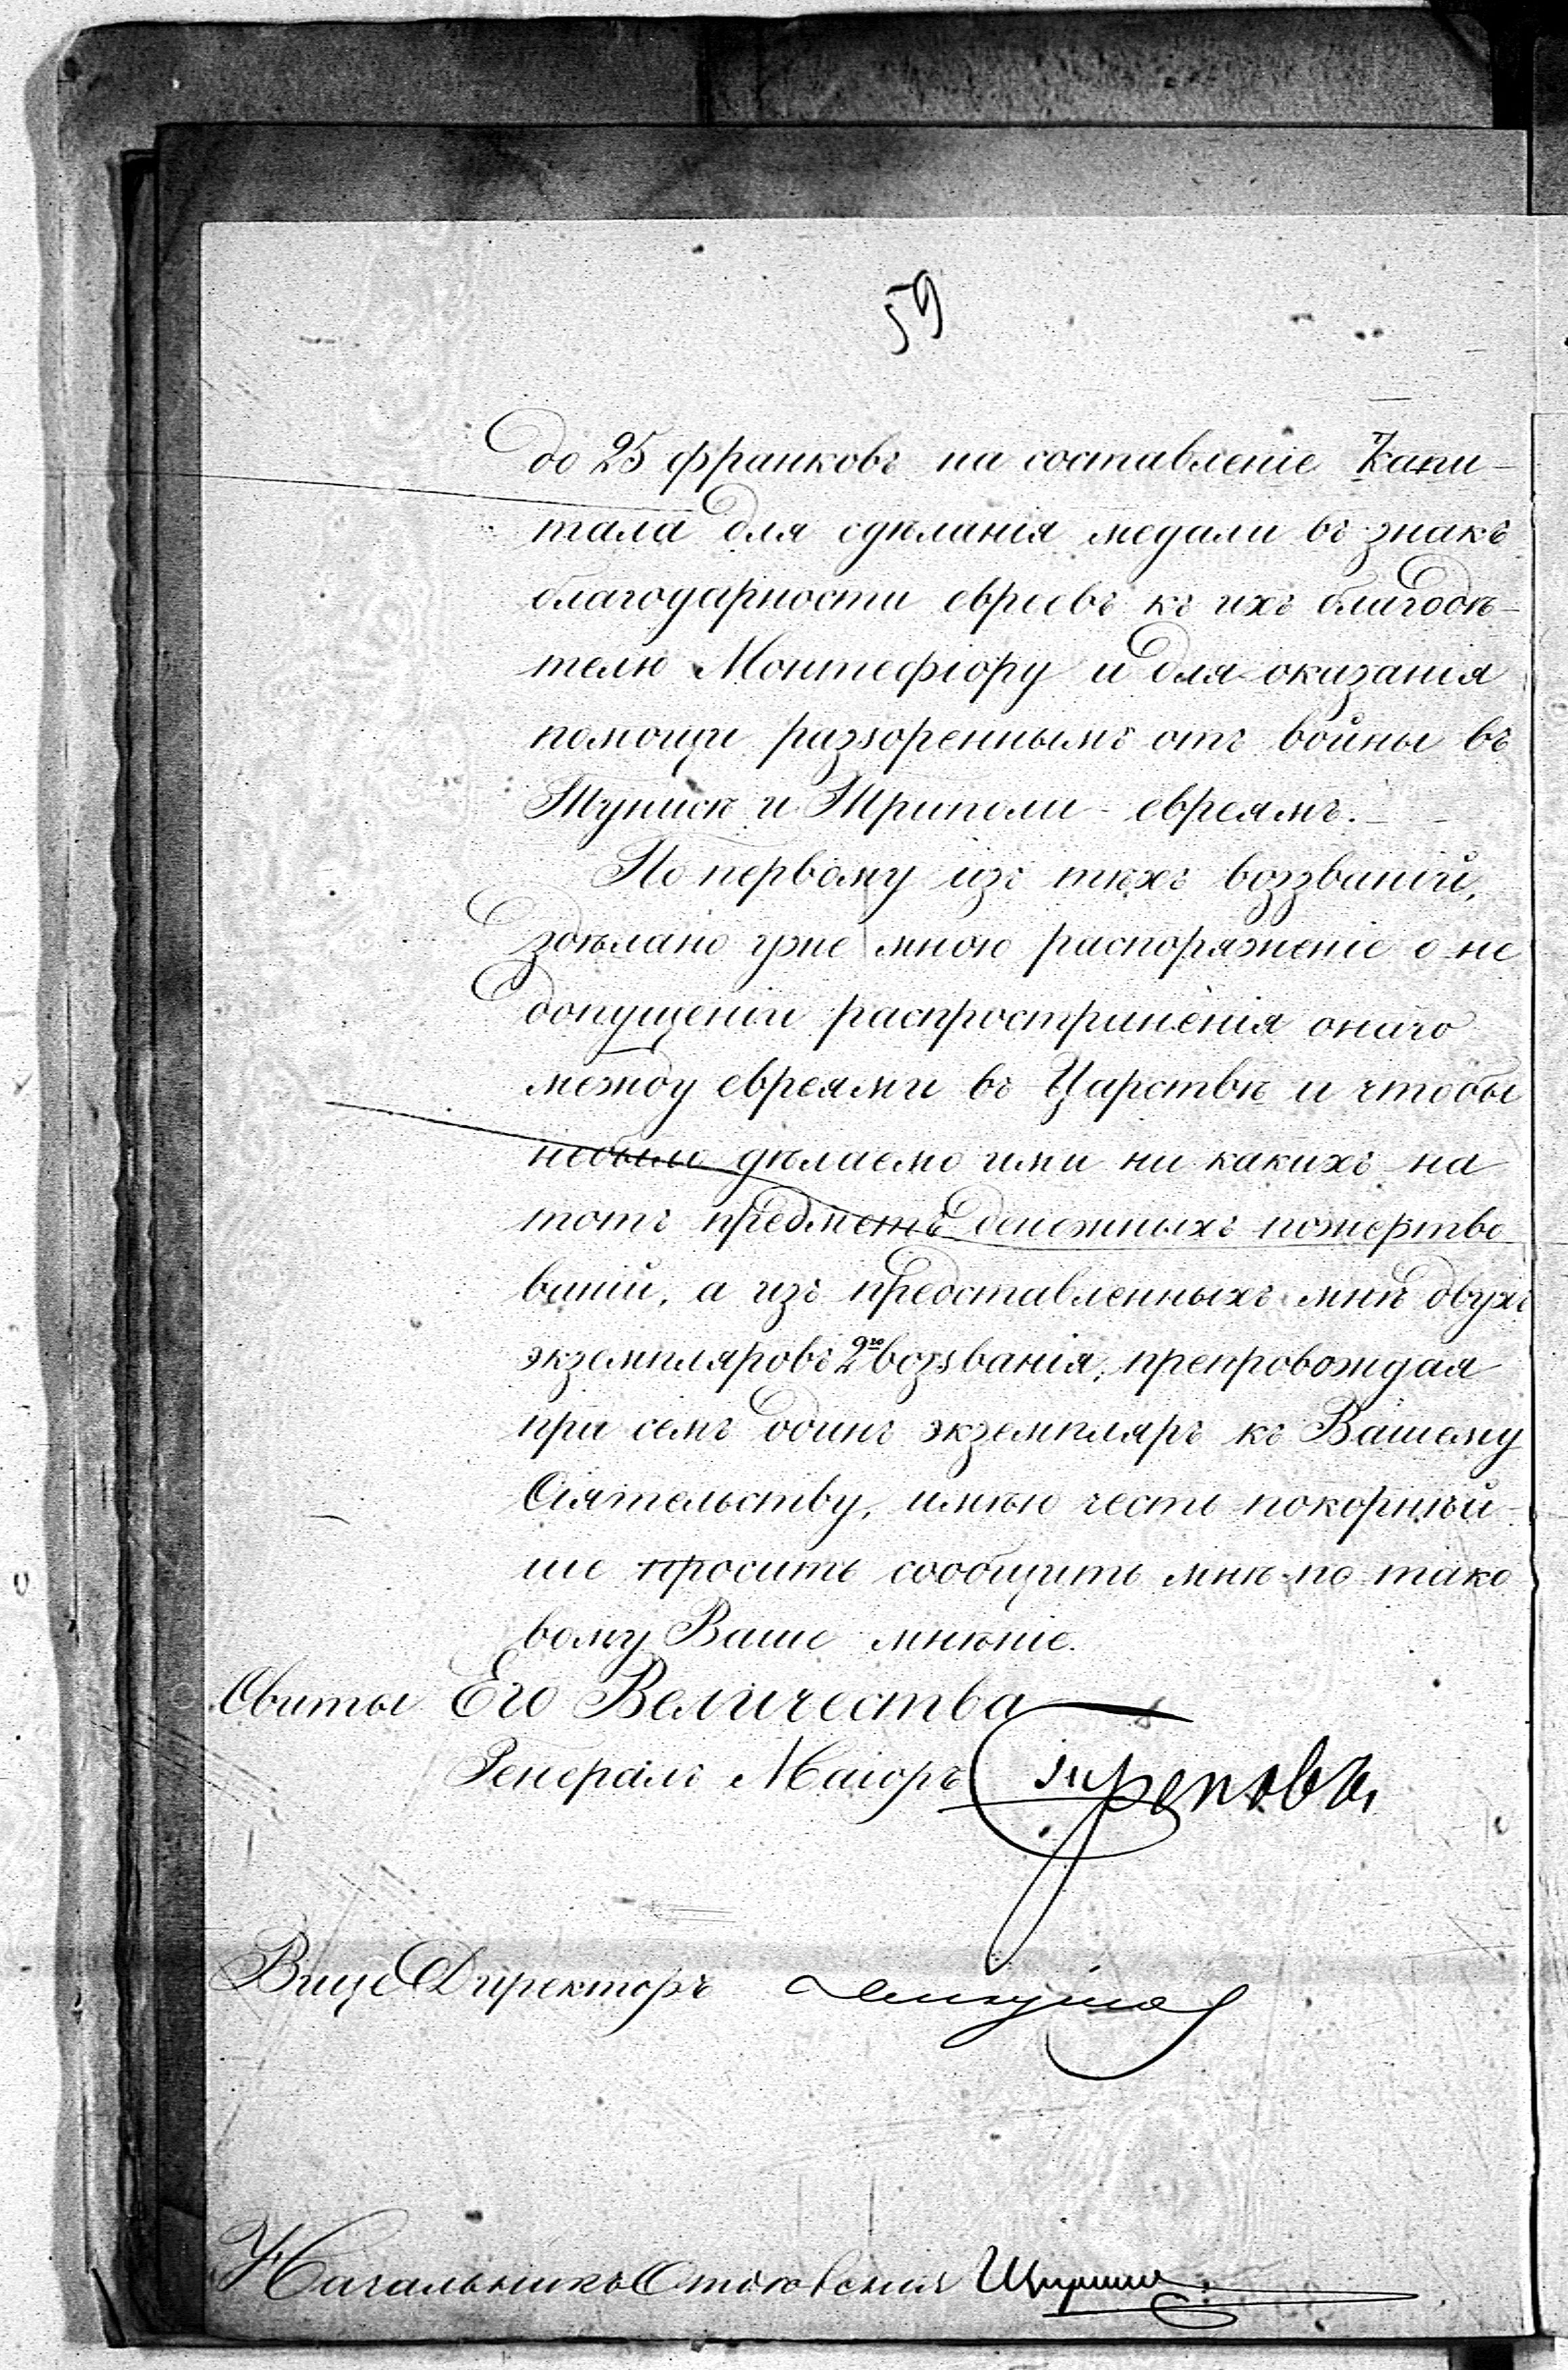 59
до 25 франковъ на составленіе Капи-
тала для сдѣланія медали въ знакъ
благодарности евреевъ къ ихъ благодѣ-
телю Монтефіору и для оказанія
помощи раззореннымъ отъ войны въ
Тунисѣ и Триполи - евреямъ.
По первому изъ тѣхъ воззваній,
здѣлано уже мною распоряженіе о не
допущеніи распространенія онаго
между евреями въ Царствѣ и чтобы
небыло дѣлаемо ими ни какихъ на
тотъ предметъ денежныхъ пожертво
ваній, а изъ представленныхъ мнѣ двухъ
экземпляровъ 2го воззванія, препровождая
при семъ одинъ экземпляръ къ Вашему
Сіятельству, имѣю честь покорнѣй-
ше просить сообщить мнѣ по тако
вому Ваше мнѣніе.
Свиты Его Величества
Генералъ Маіоръ Треповъ
Вице Директоръ
Начальникъ Отдѣленія